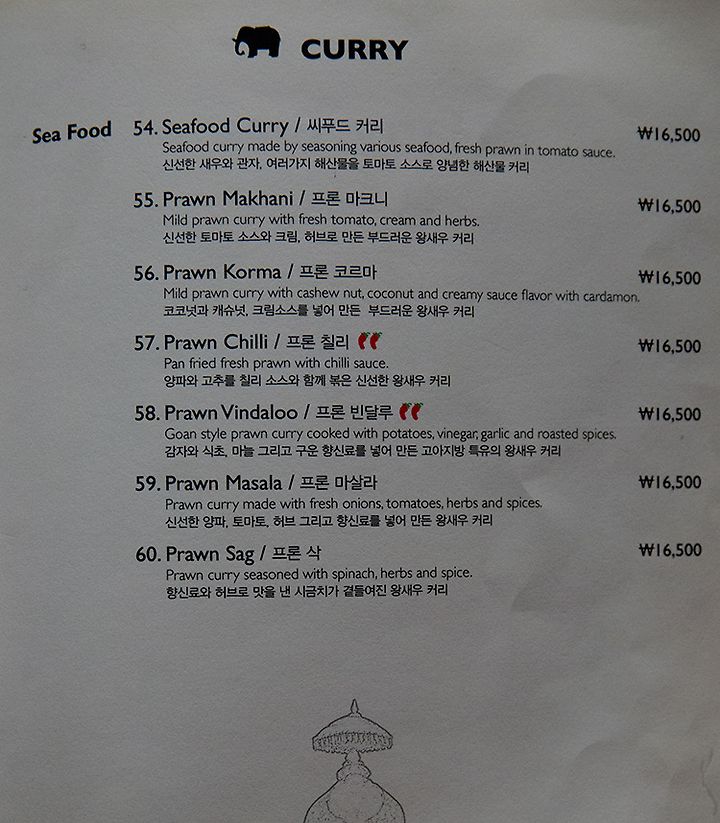 CURRY
Sea Food
54. Seafood Curry / 씨푸드 커리 ₩16,500
Seafood curry made by seasoning various seafood, fresh prawn in tomato sauce.
신선한 새우와 관자, 여러가지 해산물을 토마토 소스로 양념한 해산물 커리
55. Prawn Makhani / 프론 마크니 ₩16,500
Mild prawn curry with fresh tomato, cream and herbs.
신선한 토마토 소스와 크림, 허브로 만든 부드러운 왕새우 커리
56. Prawn Korma / 프론 코르마 ₩16,500
Mild prawn curry with cashew nut, coconut and creamy sauce flavor with cardamon.
코코넛과 캐슈넛, 크림소스를 넣어 만든 부드러운 왕새우 커리
57. Prawn Chilli / 프론 칠리 ₩16,500
Pan fried fresh prawn with chilli sauce.
양파와 고추를 칠리 소스와 함께 볶은 신선한 왕새우 커리
58. Prawn Vindaloo / 프론 빈달루 ₩16,500
Goan style prawn curry cooked with potatoes, vinegar, garlic and roasted spices.
감자와 식초, 마늘 그리고 구운 향신료를 넣어 만든 고아지방 특유의 왕새우 커리
59. Prawn Masala / 프론 마살라 ₩16,500
Prawn curry made with fresh onions, tomatoes, herbs and spices.
신선한 양파, 토마토, 허브 그리고 향신료를 넣어 만든 왕새우 커리
60. Prawn Sag / 프론 삭 ₩16,500
Prawn curry seasoned with spinach, herbs and spice.
향신료와 허브로 맛을 낸 시금치가 곁들여진 왕새우 커리